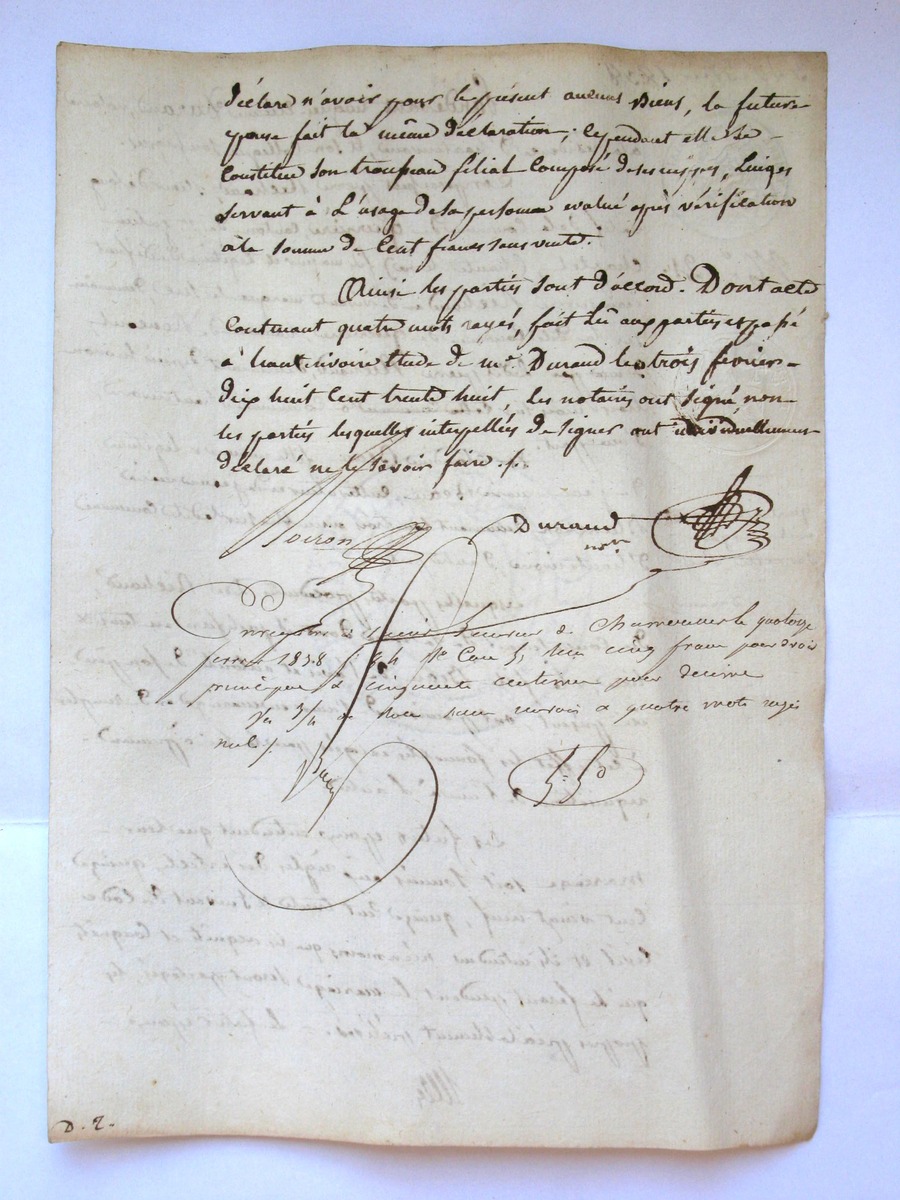 déclare n'avoir pour le présent aucuns Biens, la future
épouse fait la même déclaration; cependant elle se
Constitue son trousseau filial Composé de ses nippes, Linges
servant à L'usage de sa personne evalué après vérification
à la somme de Cent francs sans vente.
Ainsi les parties sont d'accord. Dont acte
Contenant quatre mots rayés, fait Lû aux parties et passé
à hauterivoire Etude de me. Durand le trois février
dix huit Cent trente huit, les notaires ont signé non
les parties lesquelles interpellées de signer ont individuellement
déclaré ne le savoir faire ./.
Poiron Durand
nore
Enregistré à le quatorze
fevrier 1838 cinq francs pour droit
principal & cinquante centimes pour decime
quatre mots rayés
nuls
D. 2.